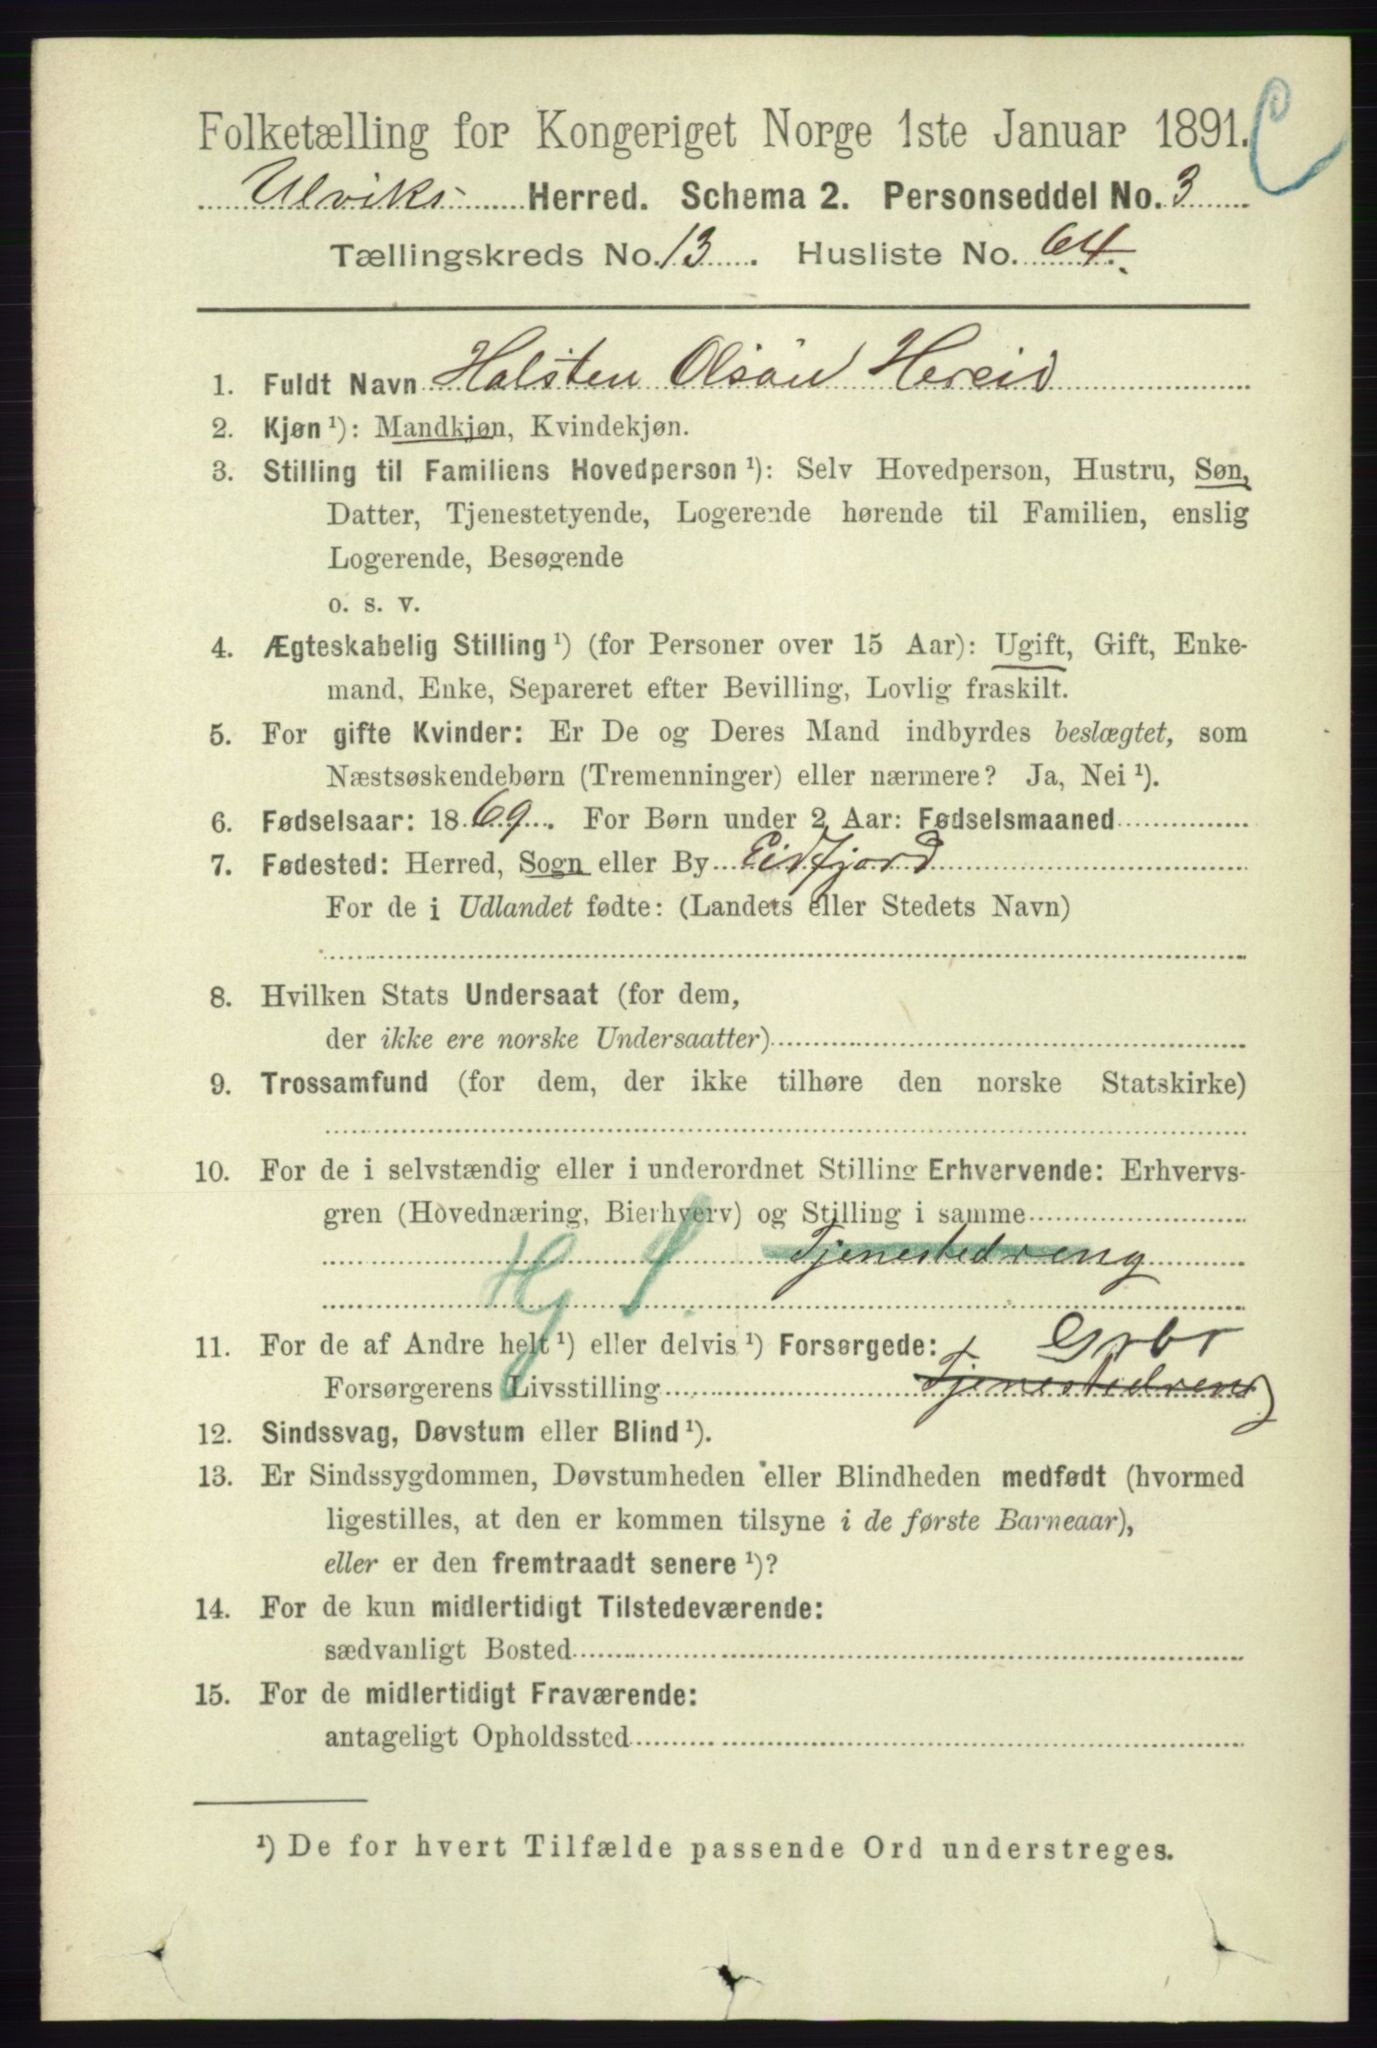 Folketælling for Kongeriget Norge 1ste Januar 1891. C
Ulviks Herred. Schema 2. Personseddel No. 3
Tællingskreds No. 13. Husliste No. 64.
1. Fuldt Navn Halsten Olsøn Hereid
2. Kjøn ¹): Mandkjøn, Kvindekjøn.
3. Stilling til Familiens Hovedperson ¹): Selv Hovedperson, Hustru, Søn,
Datter, Tjenestetyende, Logerende hørende til Familien, enslig
Logerende, Besøgende
o. s. v.
4. Ægteskabelig Stilling ¹) (for Personer over 15 Aar): Ugift, Gift, Enke-
mand, Enke, Separeret efter Bevilling, Lovlig fraskilt.
5. For gifte Kvinder: Er De og Deres Mand indbyrdes beslægtet, som
Næstsøskendebørn (Tremenninger) eller nærmere? Ja, Nei ¹).
6. Fødselsaar: 1869. For Børn under 2 Aar: Fødselsmaaned
7. Fødested: Herred, Sogn eller By Eidfjord
For de i Udlandet fødte: (Landets eller Stedets Navn)
8. Hvilken Stats Undersaat (for dem,
der ikke ere norske Undersaatter)
9. Trossamfund (for dem, der ikke tilhøre den norske Statskirke)
10. For de i selvstændig eller i underordnet Stilling Erhvervende: Erhvervs-
gren (Hovednæring, Bierhverv) og Stilling i samme
Tjenestedreng
11. For de af Andre helt ¹) eller delvis ¹) Forsørgede: Grbr
Forsørgerens Livsstilling Tjenestedreng
12. Sindssvag, Døvstum eller Blind ¹).
13. Er Sindssygdommen, Døvstumheden eller Blindheden medfødt (hvormed
ligestilles, at den er kommen tilsyne i de første Barneaar),
eller er den fremtraadt senere ¹)?
14. For de kun midlertidigt Tilstedeværende:
sædvanligt Bosted
15. For de midlertidigt Fraværende:
antageligt Opholdssted
¹) De for hvert Tilfælde passende Ord understreges.